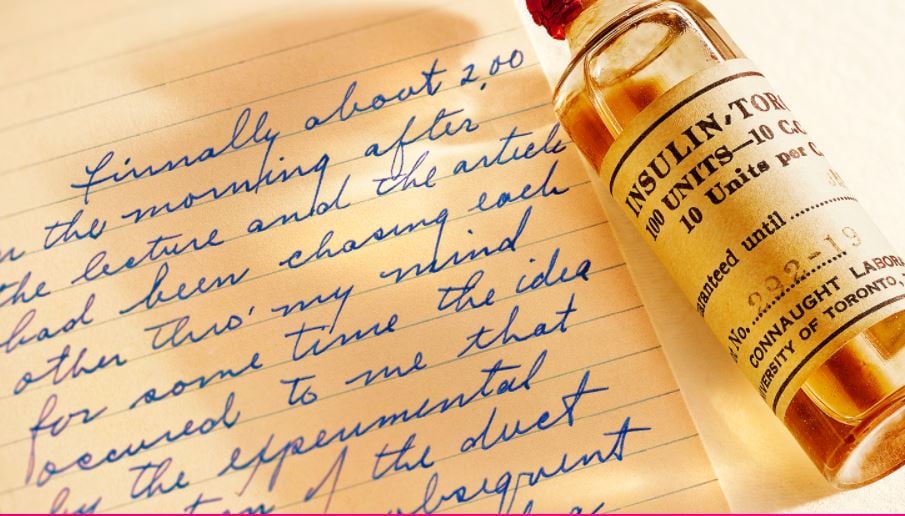 Finnally about 2.00
in the morning after
the lecture and the article
had been chasing each
other thro' my mind
for some time the idea
occured to me that
by the experimental
of the duct
INSULIN-TOR
100 UNITS—10 C.C.
10 Units per C
aranteed until
No. 292-19
CONNAUGHT LABORA
VERSITY OF TORONTO,